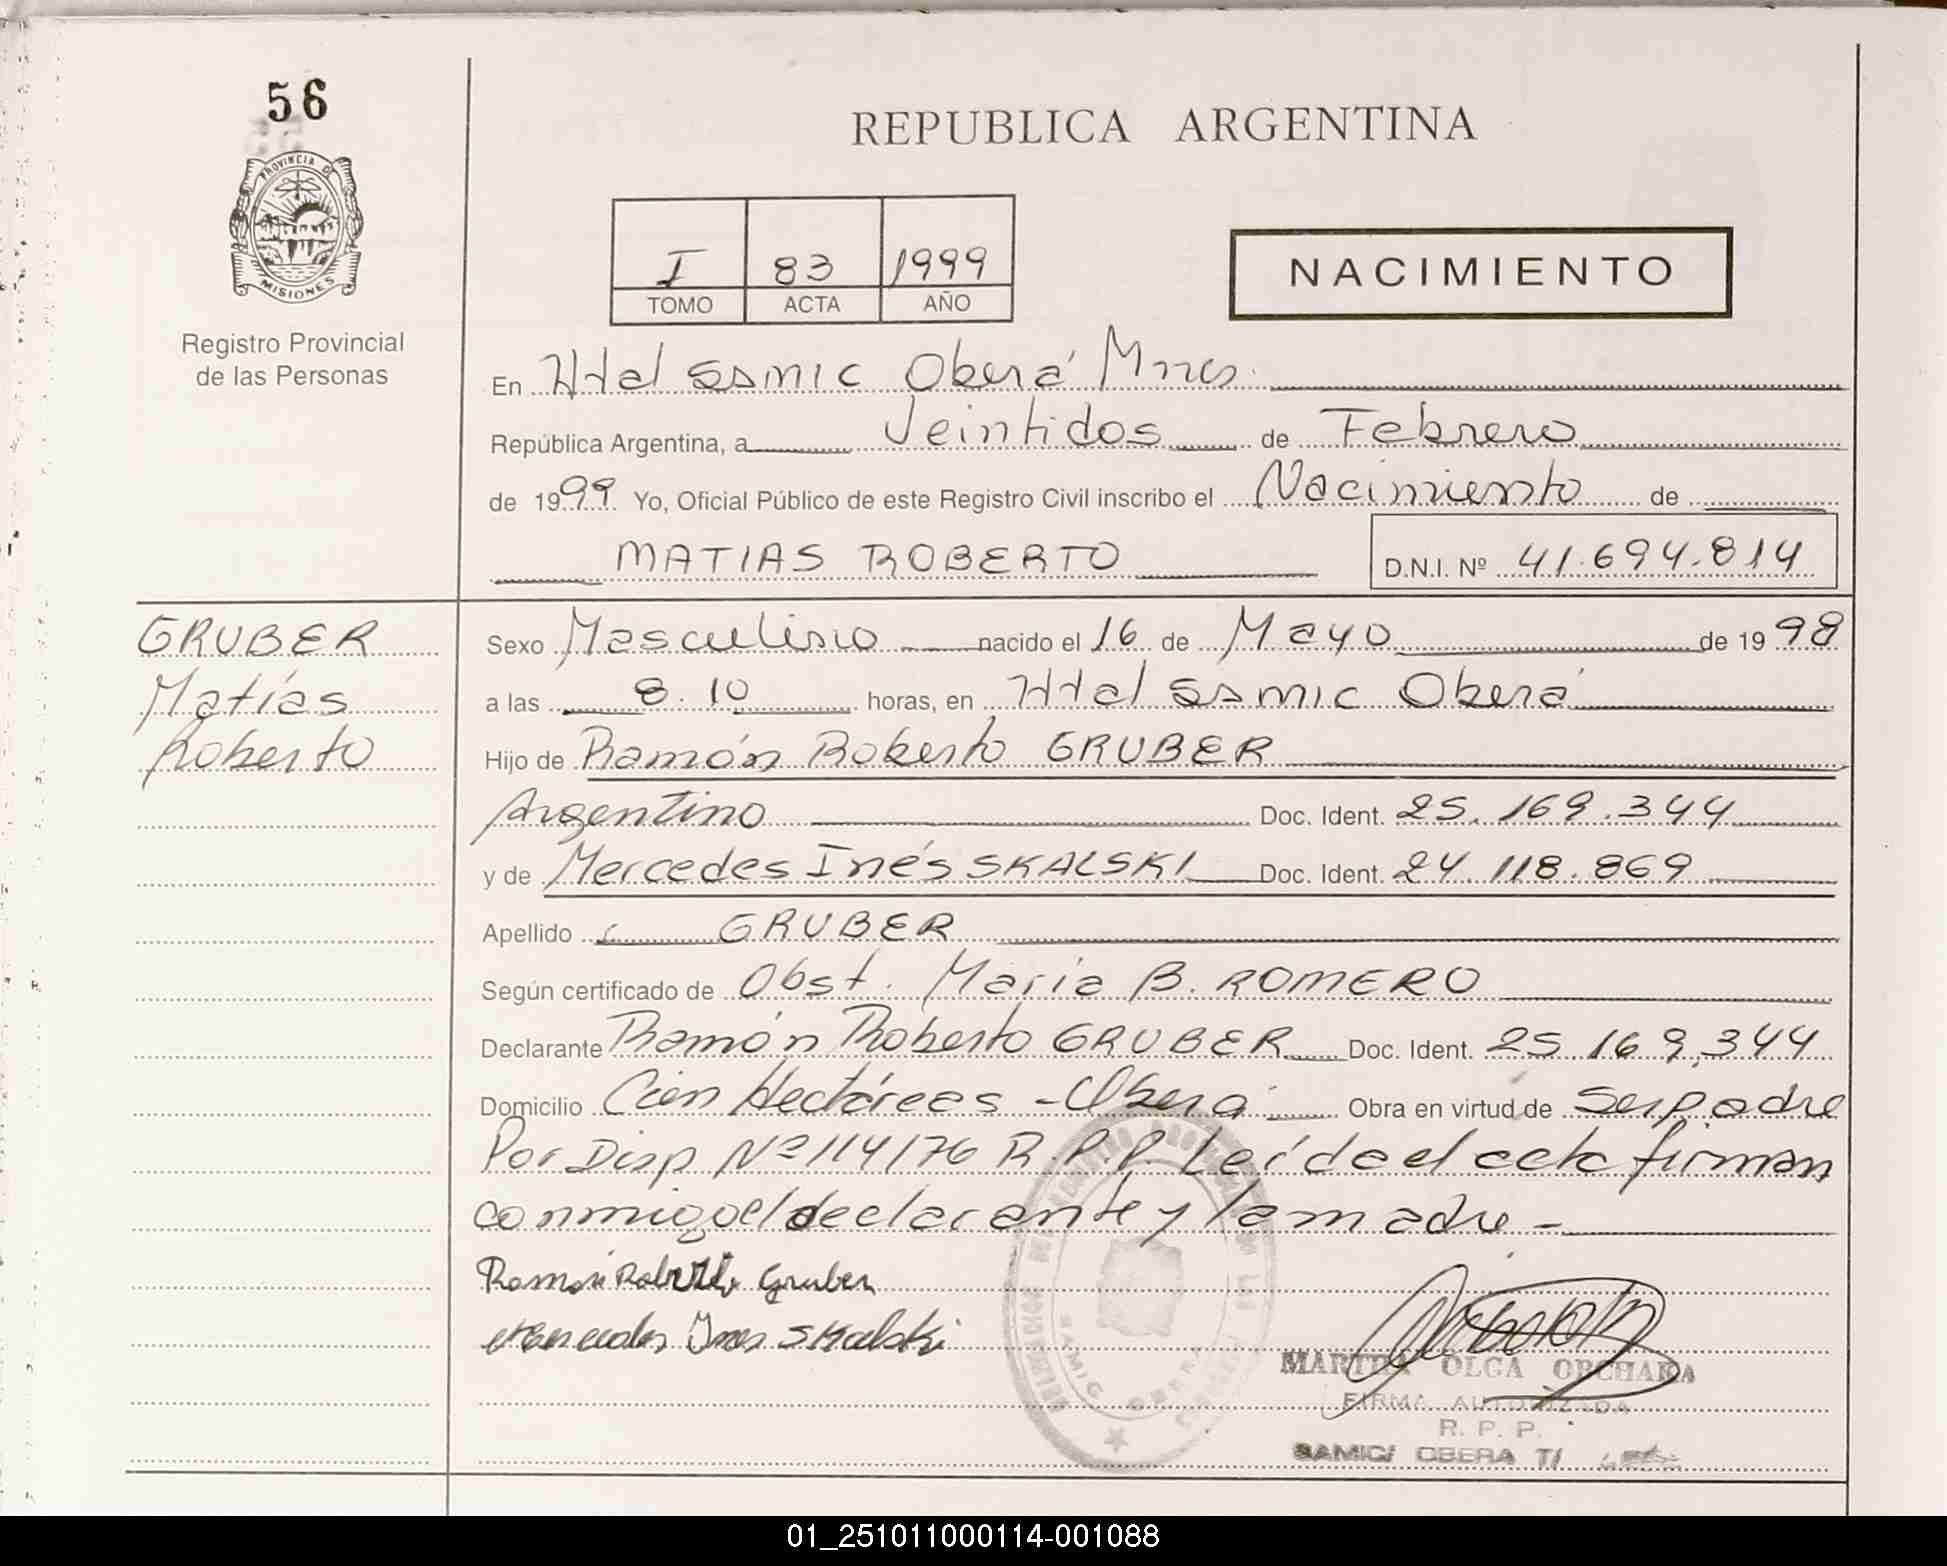 56
PROVINCIA DE
MISIONES
Registro Provincial
de las Personas
REPUBLICA ARGENTINA
I 83 1999
TOMO ACTA AÑO
NACIMIENTO
En Htal Samic Oberá Mnes.
República Argentina, a Veintidos de Febrero
de 1999 Yo, Oficial Público de este Registro Civil inscribo el Nacimiento de
MATIAS ROBERTO
D.N.I. Nº 41.694.814
GRUBER
Matías
Roberto
Sexo Masculino nacido el 16 de Mayo de 1998
a las 8.10 horas, en Htal Samic Oberá
Hijo de Ramón Roberto GRUBER
Argentino Doc. Ident. 25.169.344
y de Mercedes Inés SKALSKI Doc. Ident. 24.118.869
Apellido GRUBER
Según certificado de Obst. María B. ROMERO
Declarante Ramón Roberto GRUBER Doc. Ident. 25.169.344
Domicilio Cien Hectáreas - Oberá Obra en virtud de Ser padre
Por Disp Nº 114/76 R.P.P. Leída el acta firman
conmigo el declarante y la madre -
Ramón Roberto Gruber
Mercedes Ines Skalski
MARTHA OLGA
FIRMA AUTORIZADA
R. P. P.
SAMIC/ OBERA
SAMIC OBERA
01_251011000114-001088